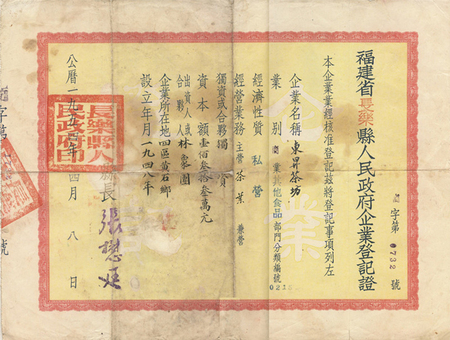 福建省長樂縣人民政府企業登記證
字第 0732 號
本企業業經核准登記茲將登記事項列左
企業名稱 東昇茶坊
業別 商業其他食品部門分類編號
經濟性質 私營
經營業務 主營 茶葉 兼營
獨資或合夥 獨資
資本額 壹佰叁拾叁萬元
出資人或合夥人 林家團
企業所在地 四區黃石鄉
設立年月 一九四八年
縣長 張懋
公曆一九五 年 四月 八日
長樂縣人民政府印